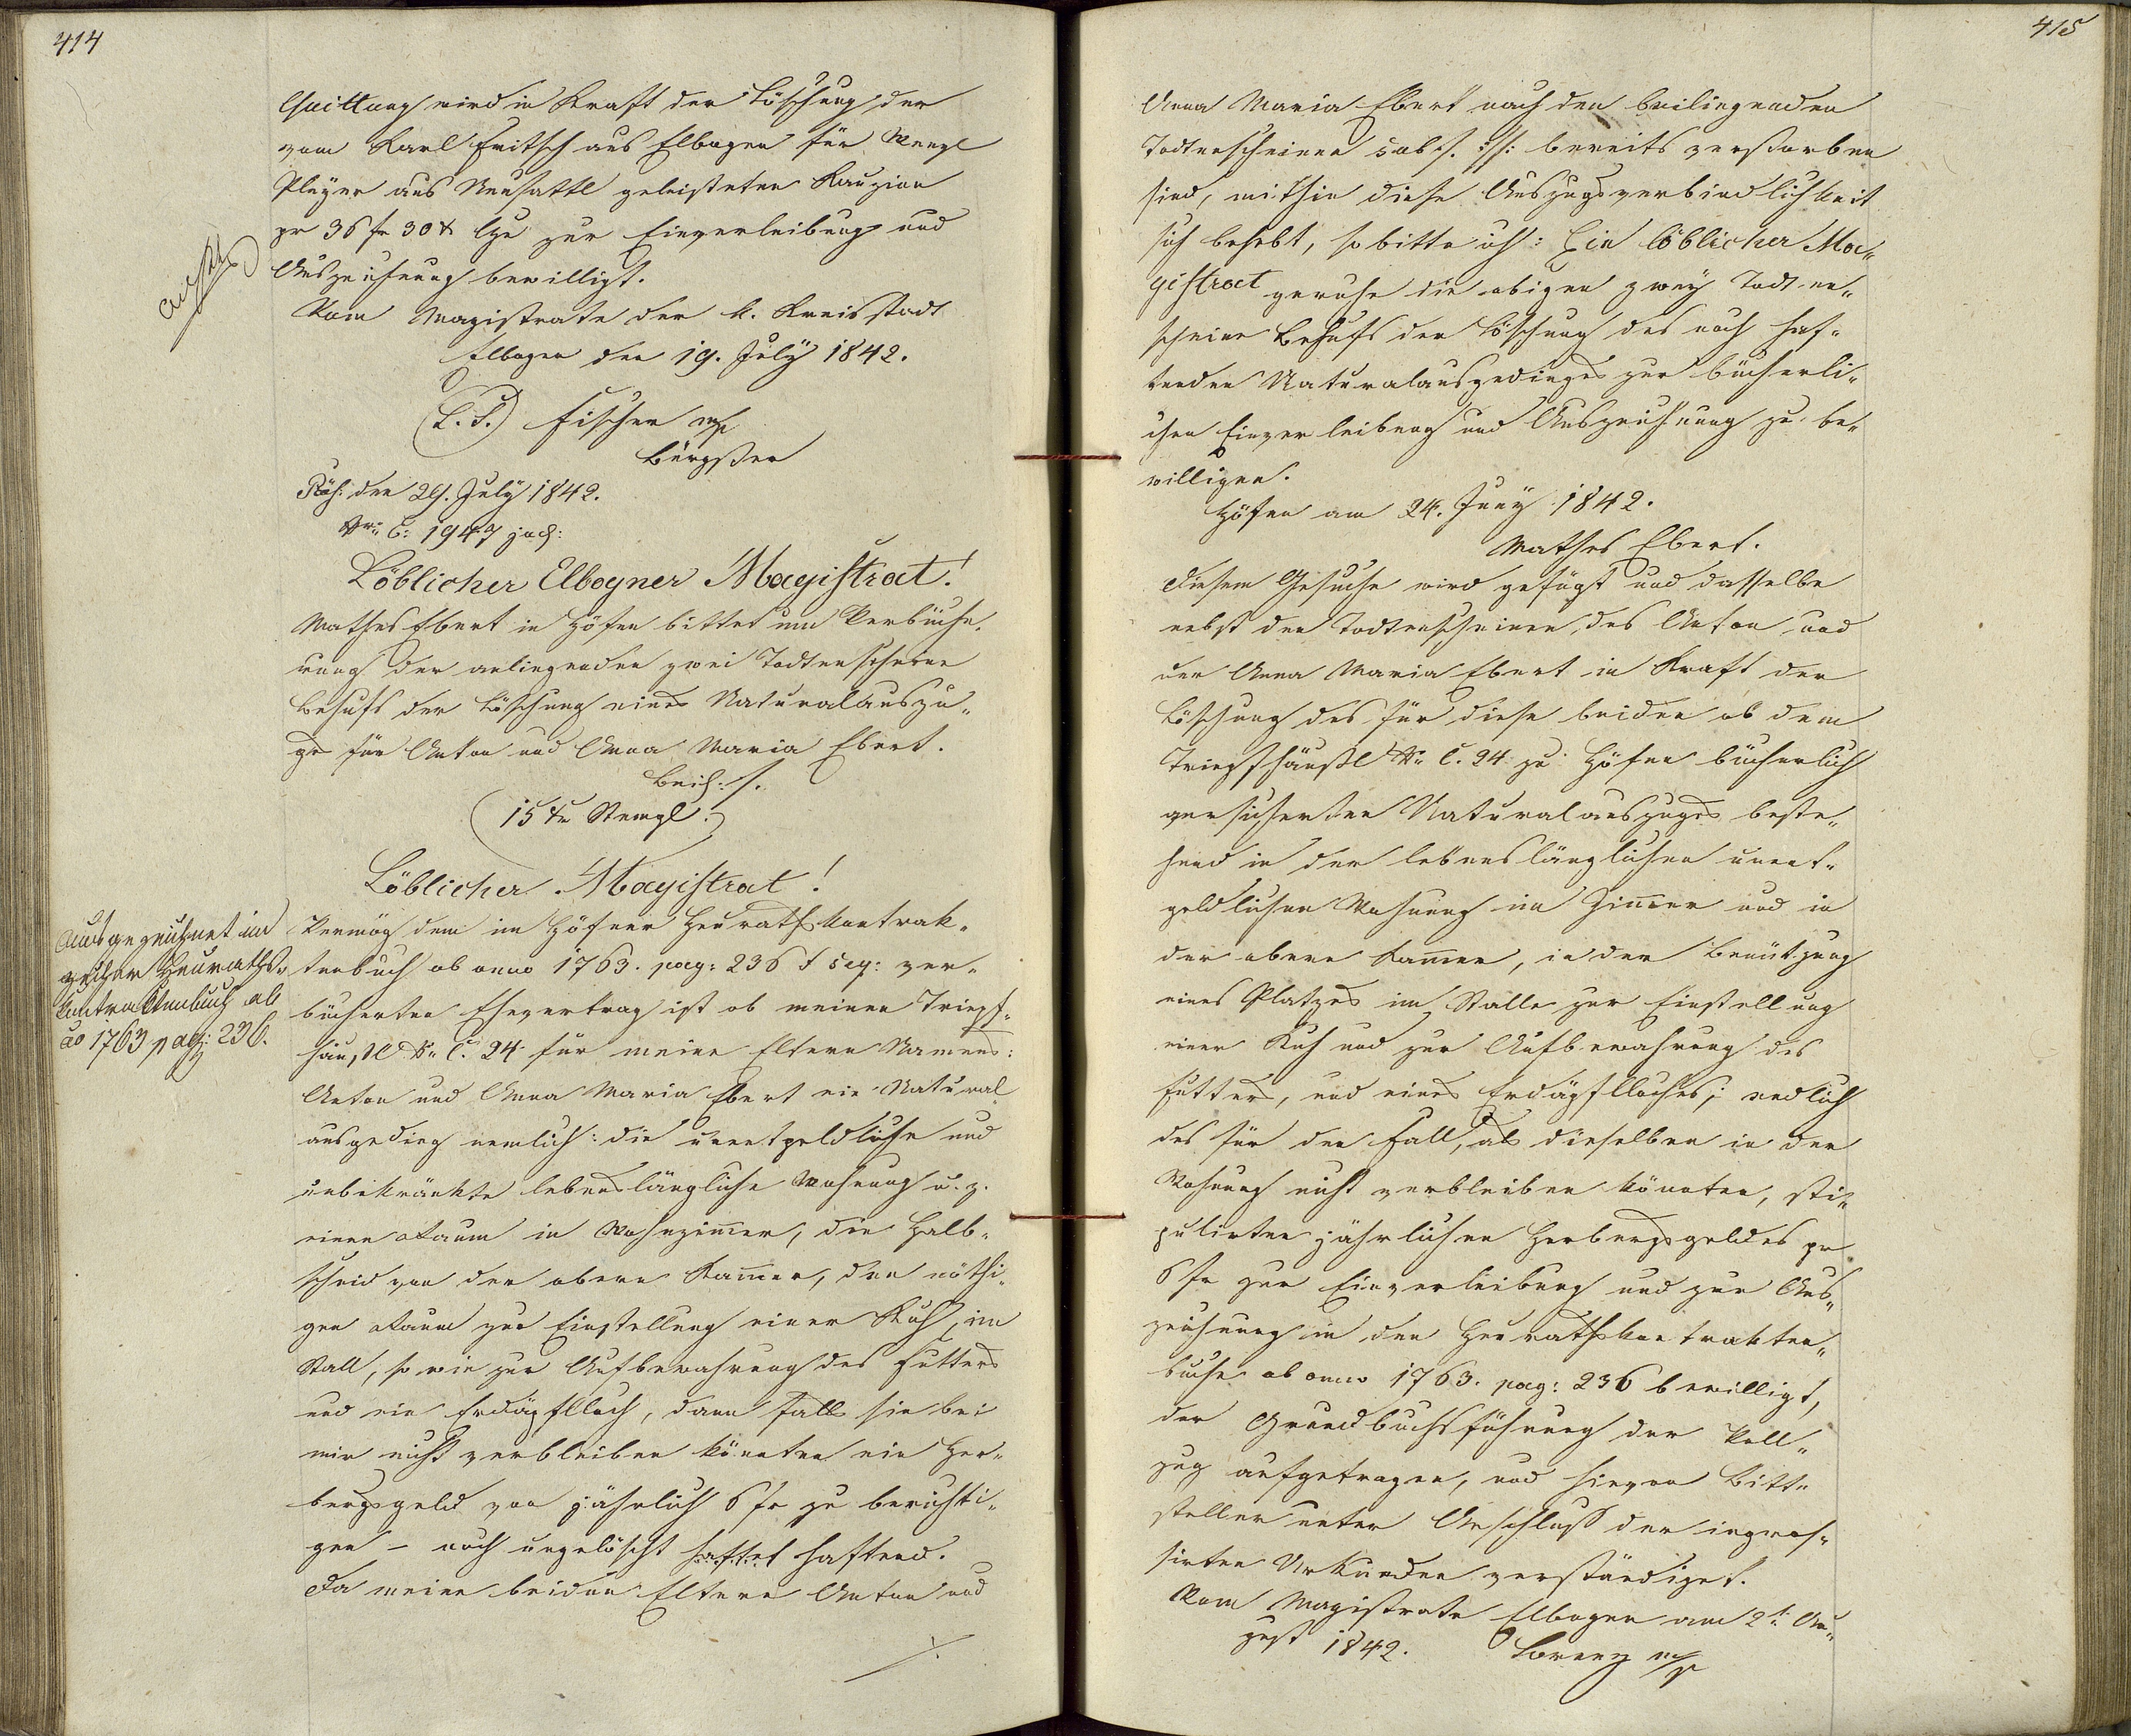 414
Quittung wird in Kraft der Löschung der
vom Karl Fritsch aus Elbogen für Wenzl
Pleyer aus Neusattl geleisteten Kauzion
pr 36 fr 30 x zur Einverleibung und
Auszeichnung bewilligt.
Vom Magistrate der k. Kreisstadt
Elbogen den 19. July 1842.
(L. S.) Fischer mp
Bürgstm
den 29. July 1842.
Nr. E: 1947 jud:
Löblicher Elbogner Magistrat!
Mathes Ebert in Höfen bittet um Verbüche„
rung der anliegenden zwei Todtenscheine
Behufs der Löschung eines Naturalauszu„
ges für Anton und Anna Maria Ebert.
Beil: ·/.
(15 xr Stempl.)
Löblicher Magistrat!
Ausgezeichnet im
Heuraths„
kontraktenbuch ab
ao 1763 pag: 236.
Vermög dem im Höfner Heurathskontrak„
tenbuch ab anno 1763. pag: 236 f seq: ver„
bücherten Ehevertrag ist ob meinem Tripf„
häußl Nr. C. 24 für meine Eltern Namens:
Anton und Anna Maria Ebert ein Natural
ausgeding nemlich: die unentgeldliche und
unbekränkte lebenslängliche Wohnung u. z.
einen Raum im Wohnzimmer, die Halb„
scheid von der obern Kammer, den nöthi„
gen Raum zur Einstellung einer Kuh, im
Stall, so wie zur Aufbewahrung des Futters
und ein Erdäpflloch, dann falls sie bei
mir nicht verbleiben könnten ein Her„
bergsgeld von jährlich 6 fr zu berichti„
gen – noch ungelöscht haftet haftend.
Da meine beiden Eltern Anton und
·/.
415
Anna Maria Ebert nach den beiliegenden
Todtenscheinen sub ·/. ·//: bereits verstorben
sind, mithin diese Auszugsverbindlichkeit
sich behebt, so bitte ich: Ein löblicher Ma„
gistrat geruhe die obigen zwey Todten„
scheine Behufs der Löschung des noch haf„
tenden Naturalausgedinges zur bücherli„
chen Einverleibung und Auszeichnung zu be„
willigen.
Höfen am 24. Juny 1842.
Mathes Ebert.
Diesem Gesuche wird gefügt und dasselbe
nebst den Todtenscheinen, des Anton und
der Anna Maria Ebert in Kraft der
Löschung des für diese beiden ob dem
Tripfhäußl Nr. C. 24 zu Höfen bücherlich
versicherten Naturalauszuges beste„
hend in der lebenslänglichen unent„
geldlichen Wohnung im Zimmer und in
der obern Kammer, in der Benützung
eines Platzes im Stalle zur Einstellung
einer Kuh und zur Aufbewahrung des
Futters, und eines Erdäpflloches; endlich
des für den Fall, als dieselben in der
Wohnung nicht verbleiben könnten, sti„
pulirten jährlichen Herbergsgeldes pr
6 fr zur Einverleibung und zur Aus„
zeichnung in den Heurathskontrakten„
buche ab anno 1763. pag: 236 bewilligt,
der Grundbuchsführung der Voll„
zug aufgetragen, und hievon Bitt„
steller unter Anschluß der ingros„
sirten Urkunden verständiget.
Vom Magistrate Elbogen am 2t. Au„
gust 1842.
Lorenz mp